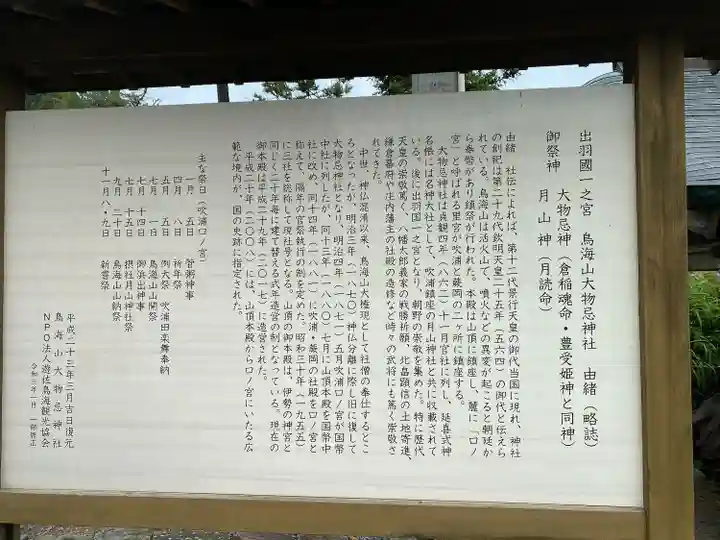 出羽國一之宮 鳥海山大物忌神社 由緒(略誌)
御祭神 大物忌神(倉稲魂命・豊受姫神と同神)
月山神(月読命)
由緒 社伝によれば、第十二代景行天皇の御代当国に現れ、神社
の創祀は第二十九代欽明天皇二十五年(五六四)の御代と伝えら
れている。鳥海山は活火山で、噴火などの異変が起こると朝廷か
ら奉幣があり鎮祭が行われた。本殿は山頂に鎮座し、麓に「口ノ
宮」と呼ばれる里宮が吹浦と蕨岡の二ヶ所に鎮座する。
大物忌神社は貞観四年(八六二)十一月官社に列し、延喜式神
名帳には名神大社として、吹浦鎮座の月山神社と共に収載されて
いる。後に出羽国一之宮となり、朝野の崇敬を集めた。特に歴代
天皇の崇敬篤く、八幡太郎義家の戦勝祈願、北畠顕信の土地寄進、
鎌倉幕府や庄内藩主の社殿の造修など時々の武将にも篤く崇敬さ
れてきた。
中世、神仏混淆以来、鳥海山大権現として社僧の奉仕するとこ
ろとなったが、明治三年(一八七〇)神仏分離に際し旧に復して
大物忌神社となり、明治四年(一八七一)五月吹浦口ノ宮が国幣
中社に列したが、同十三年(一八八〇)七月に山頂本殿を国幣中
社に改め、同十四年(一八八一)に吹浦・蕨岡の社殿を口ノ宮と
称えて、隔年の官祭執行の制を定めた。昭和三十年(一九五五)
に三社を総称して現社号となる。山頂の御本殿は、伊勢の神宮と
同じく二十年毎に建て替える式年造営の制となっている。現在の
御本殿は平成二十九年(二〇一七)に造営された。
平成二十年(二〇〇八)には、山頂本殿から口ノ宮にいたる広
範な境内が、国の史跡に指定された。
主な祭日(吹浦口ノ宮)
一月 五日 管粥神事
四月 八日 祈年祭
五月 五日 例大祭 吹浦田楽舞奉納
七月 一日 鳥海山山開祭
七月 十四日 御浜出神事
七月 十五日 摂社月山神社祭
九月 二十日 鳥海山山納祭
十一月 八・九日 新嘗祭
平成二十三年三月吉日復元
鳥海山大物忌神社
NPO法人遊佐鳥海観光協会
令和三年一月 一部修正